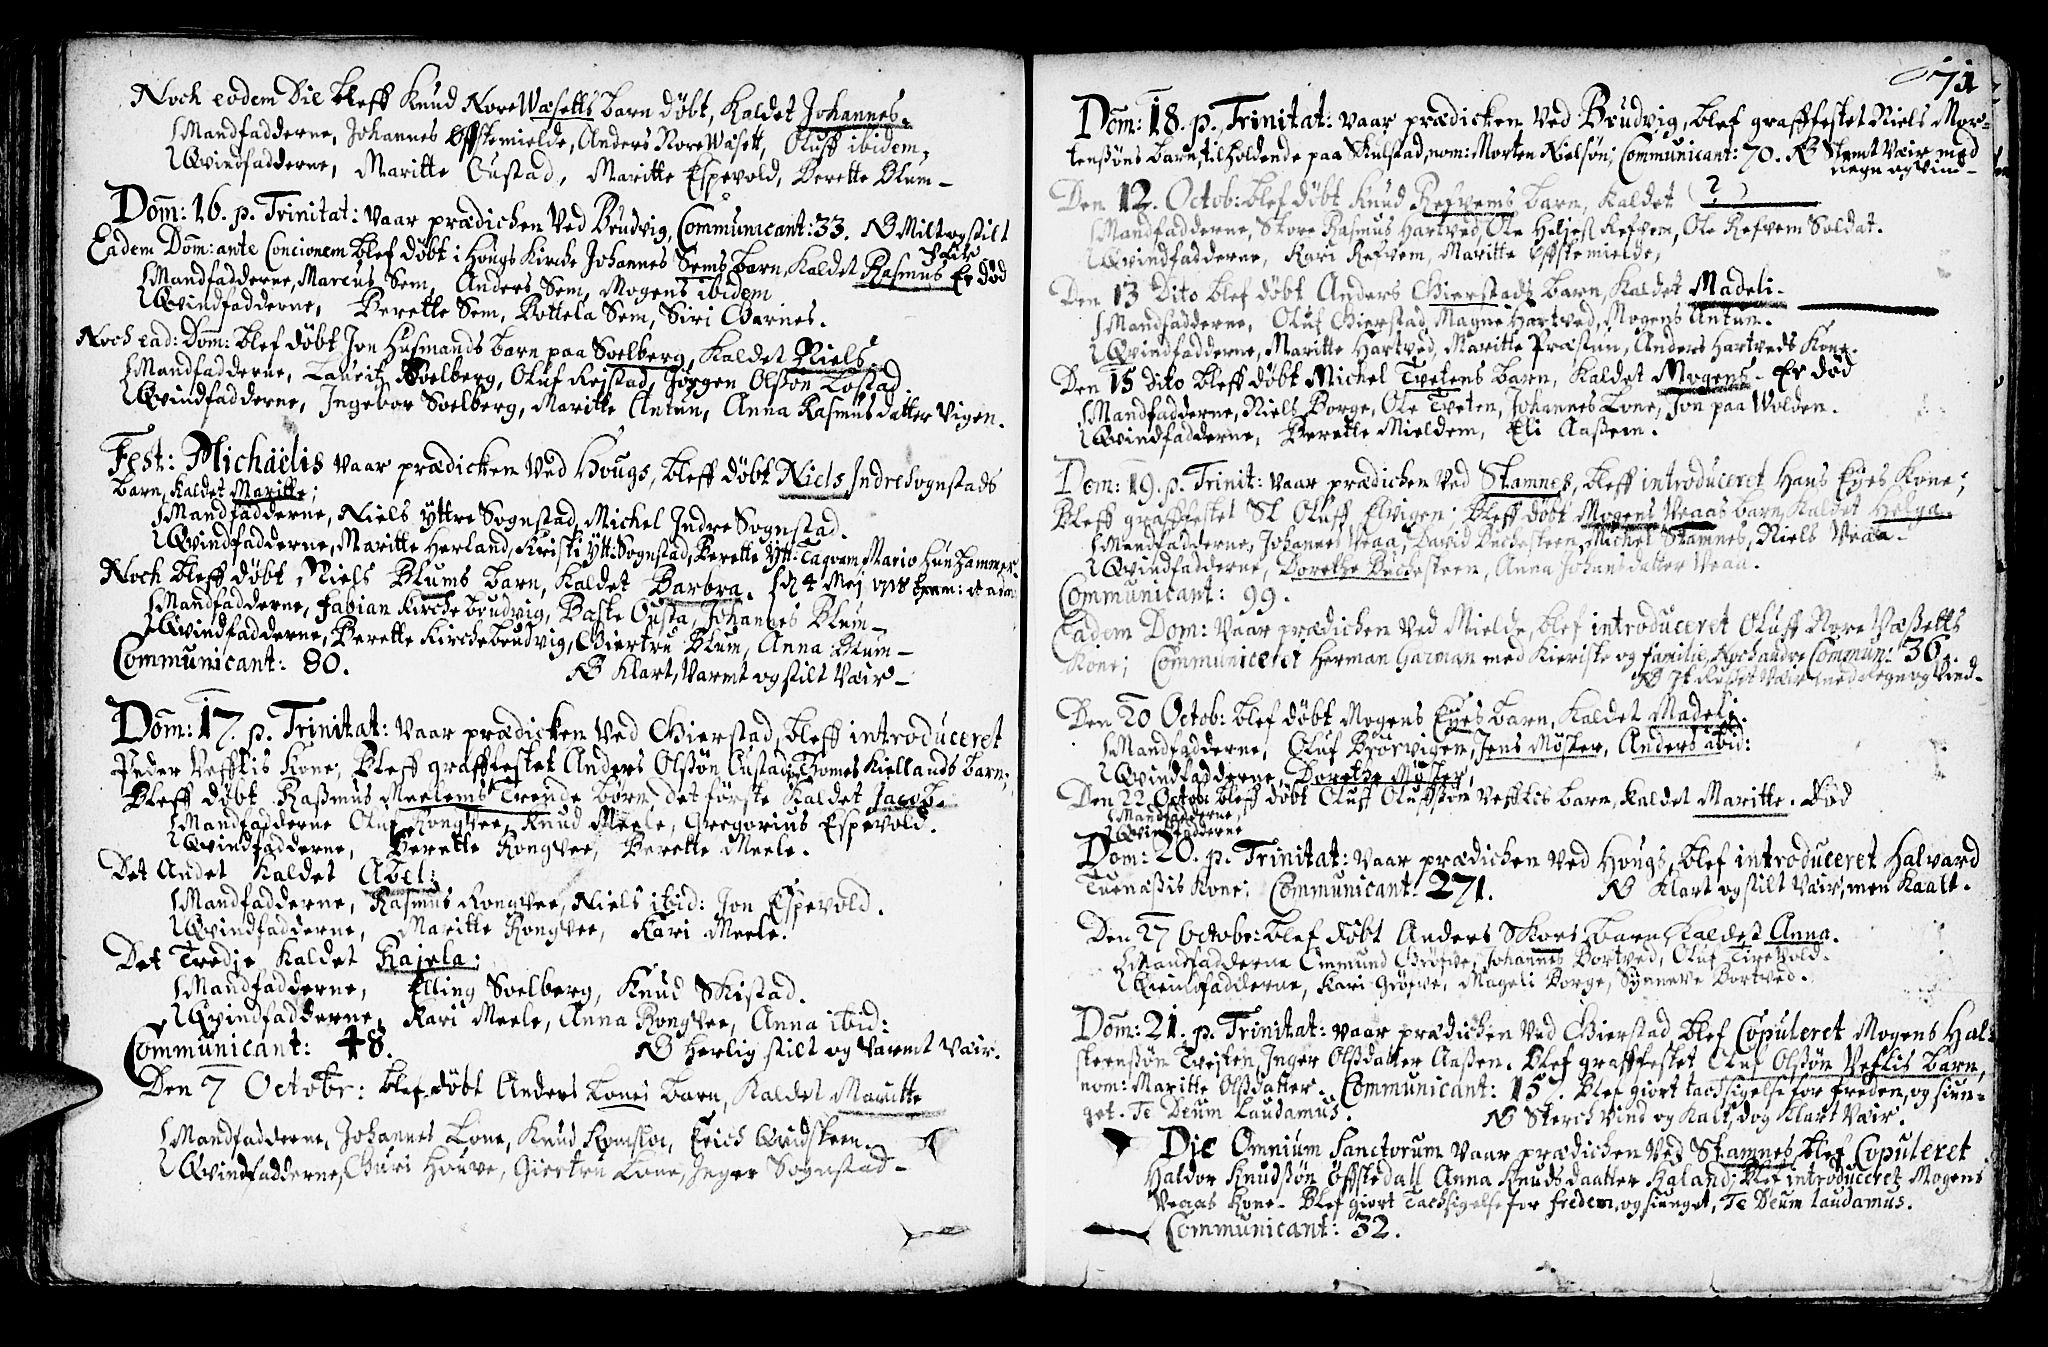 Noch eodem Die bleff Knud Nore Wasetts barn døbt, kaldet Johannes.
Mandfadderne, Johannes Øffstemielde, Anders Nore Wasett, Oluff ibidem,
Qvindfadderne, Maritte Oustad, Maritte Espevold, Berette Blum
Dom: 16. p. Trinitat: vaar prædichen ved Brudvig, Communicant: 33. NB Milt og stilt
Eadem Dom: ante Concionem blef døbt i Hougs Kirche Johannes Sems barn, kaldet Rasmus Er død
Mandfadderne, Marcus Sem, Anders Sem, Mogens ibidem
Qvindfadderne, Berette Sem, Bottela Sem, Siri Garnes.
Noch ead: Dom: blef døbt Jon Husmands barn paa Soelberg, kaldet Niels.
Mandfadderne, Lauritz Soelberg, Oluf Reistad, Jørgen Olssøn Lostad.
Qvindfadderne, Ingebor Soelberg, Maritte Antun, Anna Rasmusdatter Vigen.
Fest: Michaëlis vaar prædicken ved Hougs, bleff døbt Niels Indre Sognstads
barn, kaldet Maritte;
Mandfadderne, Niels Yttre Sognstad, Michel Indre Sognstad.
Qvindfadderne, Maritte Herland, Kirsti Ytt: Sognstad, Berette Ytt:
Noch bleff døbt Niels Blums barn, kaldet Barbra.
Mandfadderne, Fabian Kirchebrudvig, Baste Ousta, Johannes Blum
Qvindfadderne, Berette Kirchebrudvig, Giertru Blum, Anna Blum
Communicant: 80. NB Klart, Varmt og stilt Vair
Dom: 17. p. Trinitat: vaar prædicken ved Gierstad, bleff introduceret
Peder Vefftis Kone, Bleff graffestet Anders Olssøn Oustad, Thomes Kiellands barn,
Bleff døbt Rasmus Meelems Trende børn, det første kaldet Jacob.
Mandfadderne Oluf Rongvee, Knud Meele, Gregorius Espevold.
Qvindfadderne, Berette Rongvee, Berette Meele.
Det Andet kaldet Abel;
Mandfadderne, Rasmus Rongvee, Niels ibid: Jon Espevold.
Qvindfadderne, Maritte Rongvee, Kari Meele.
Det Tredje kaldet Rajela;
Mandfadderne, Elling Soelberg, Knud Skistad.
Qvindfadderne, Kari Meele, Anna Rongvee, Anna ibid:
Communicant: 48. NB herlig stilt og varmt Vair.
Den 7 Octobr: blef døbt Anders Lones barn, kaldet Maritte
Mandfadderne, Johannes Lone, Knud Romsloe, Erich Qvidsteen
Qvindfadderne, Guri Houve, Giertru Lone, Inger Sognstad
71
Dom: 18. p. Trinitat: vaar prædicken ved Brudvig, blef graffestet Niels Mor-
tenssøns barn, tilholdende paa Skulstad, nom: Morten Nielsøn; Communicant: 70. NB Slemt Vair med
Regn og vind
Den 12. Octob: blef døbt Knud Refvems barn, kaldet (?)
Mandfadderne, Store Rasmus Hartved, Ole Heljest Refvem, Ole Refvem Soldat.
Qvindfadderne, Kari Refvem, Maritte Øffstemielde,
Den 13 Dito blef døbt Anders Gierstads barn, kaldet Madeli.
Mandfadderne, Oluf Gierstad, Magne Hartved, Mogens Antun.
Qvindfadderne, Maritte Hartved, Maritte Præstun, Anders Hartveds Kone.
Den 15 dito bleff døbt Michel Tvetens barn, kaldet Mogens. Er død
Mandfadderne, Niels Borge, Ole Tveten, Johannes Lone, Jon paa Wolden.
Qvindfadderne, Berette Mieldem, Eli Aassem.
Dom: 19. p. Trinit: vaar prædichen ved Stamnes, bleff introduceret Hans Eyes Kone;
Bleff graffestet Sl Oluff Elvigen; Bleff døbt Mogens Veaas barn, kaldet Helga.
Mandfadderne, Johannes Veaa, David Buchesteen, Michel Stamnes, Niels Veaa.
Qvindfadderne, Dorethe Buchesteen, Anna Johansdatter Veaa.
Communicant: 99.
Eadem Dom: vaar prædichen ved Mielde, blef introduceret Oluff Nore Væssetts
Kone; Communiceret Herman Garman med Kieriste og familie, Noch andre Commun: 36.
Den 20 Octob: blef døbt Mogens Eyes barn, kaldet Madeli.
Mandfadderne, Oluf Brørvigen, Jens Møster, Anders ibid:
Qvindfadderne, Dorethe Møster,
Den 22 Octob: blef døbt Oluff Oluffssøn Vefftis barn, kaldet Maritte. død
Mandfadderne,
Qvindfadderne
Dom: 20. p. Trinitat: vaar prædichen ved Hougs, blef introduceret Halvard
Tuenæssis Kone; Communicant: 271. NB Klart og stilt Vair, men Kaalt.
Den 27 Octobr: blef døbt Anders Skors barn, kaldet Anna.
Mandfadderne Ommund Grøsve, Johannes Bortved, Oluf Tirevold.
Qvindfadderne, Kari Grøsve, Mageli Borge, Synneve Bortved.
Dom: 21. p. Trinitat: vaar prædichen ved Gierstad blef Copuleret Mogens Hal-
steenssøn Tveiten, Inger Olsdatter Aassen. Blef graffestet Oluf Olssøn Veftis barn,
nom: Maritte Olsdatter. Communicant: 157. Blef giort tachsigelse for freden, og siun-
get. Te Deum Laudamus. NB Sterch vind og Kalt, dog Klart Vair.
Die Omnium Sanctorum vaar prædichen ved Stamnes, blef Copuleret
Haldor Knudssøn Øffstedall Anna Knudsdaatter Kaland; Blef introduceret Mogens
Veaas Kone. Blef giort Tachsigelse for freden, og siunget, Te Deum laudamus.
Communicant: 32.